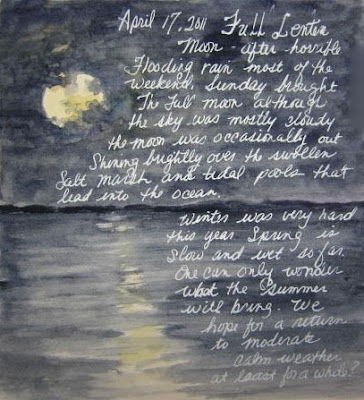 April 17, 2011 Full Lenten
Moon - after horrible
Flooding rain most of the
weekend, Sunday brought
The Full moon although
the sky was mostly cloudy
the moon was occasionally out
Shining brightly over the swollen
Salt marsh and tidal pools that
lead into the ocean.
Winter was very hard
this year. Spring is
Slow and wet so far.
One can only wonder
what the summer
will bring. We
hope for a return
to moderate
calm weather
at least for a while?